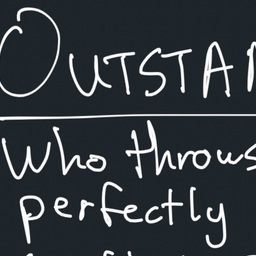 OUTSTAN
Who throws
perfectly